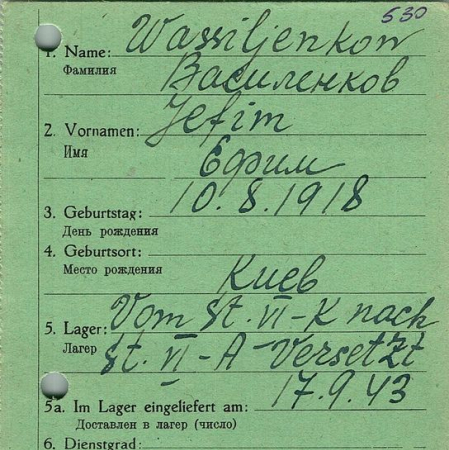 530
1. Name: Wassiljenkow
Фамилия Василенков
2. Vornamen: Jefim
Имя Ефим
3. Geburtstag: 10.8.1918
День рождения
4. Geburtsort:
Место рождения Киев
5. Lager: Vom St. VI-K nach
Лагер St. VI-A Versetzt
5a. Im Lager eingeliefert am: 17.9.43
Доставлен в лагер (число)
6. Dienstgrad: